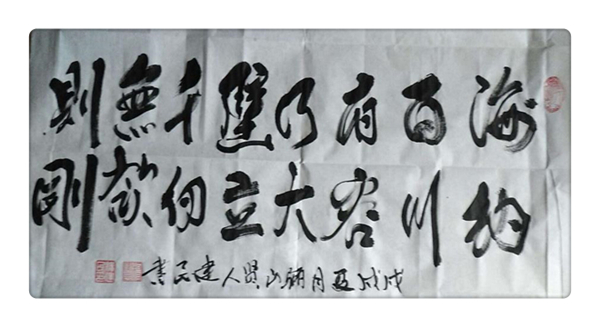 海纳
百川
有容
乃大
壁立
千仞
無欲
則剛
戊戌夏月山贤人建民書